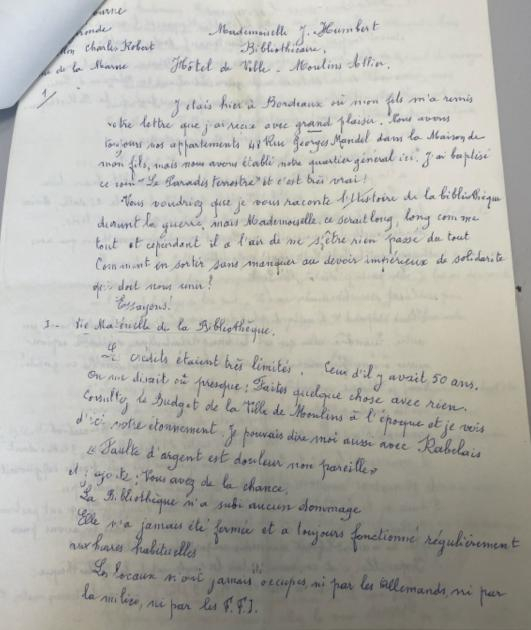 Mademoiselle J. Humbert
Charles Robert
Bibliothécaire,
de la Marne
Hôtel de Ville - Moulins Allier.
1/
J'étais hier à Bordeaux où mon fils m'a remis
votre lettre que j'ai reçue avec grand plaisir. Nous avons
toujours nos appartements 48 Rue Georges Mandel dans la Maison de
mon fils, mais nous avons établi notre quartier général ici. J'ai baptisé
ce coin "Le Paradis terrestre" et c'est très vrai!
Vous voudriez que je vous raconte l'Histoire de la bibliothèque
durant la guerre, mais Mademoiselle, ce serait long, long comme
tout et cependant il a l'air de ne s'être rien passé du tout
Comment en sortir sans manquer au devoir impérieux de solidarité
qui doit nous unir?
Essayons!
I - Vie Matérielle de la Bibliothèque.
crédits étaient très limités. Ceux d'il y avait 50 ans.
On me disait où presque: Faites quelque chose avec rien.
Consultez le Budget de la Ville de Moulins à l'époque et je vois
d'ici votre étonnement. Je pouvais dire moi aussi avec Rabelais
"Faulte d'argent est douleur non pareille"
et j'ajoute: Vous avez de la chance.
La Bibliothèque n'a subi aucun dommage
Elle n'a jamais été fermée et a toujours fonctionné régulièrement
aux heures habituelles
Les locaux n'ont jamais occupés, ni par les Allemands, ni par
la milice, ni par les F.F.I.